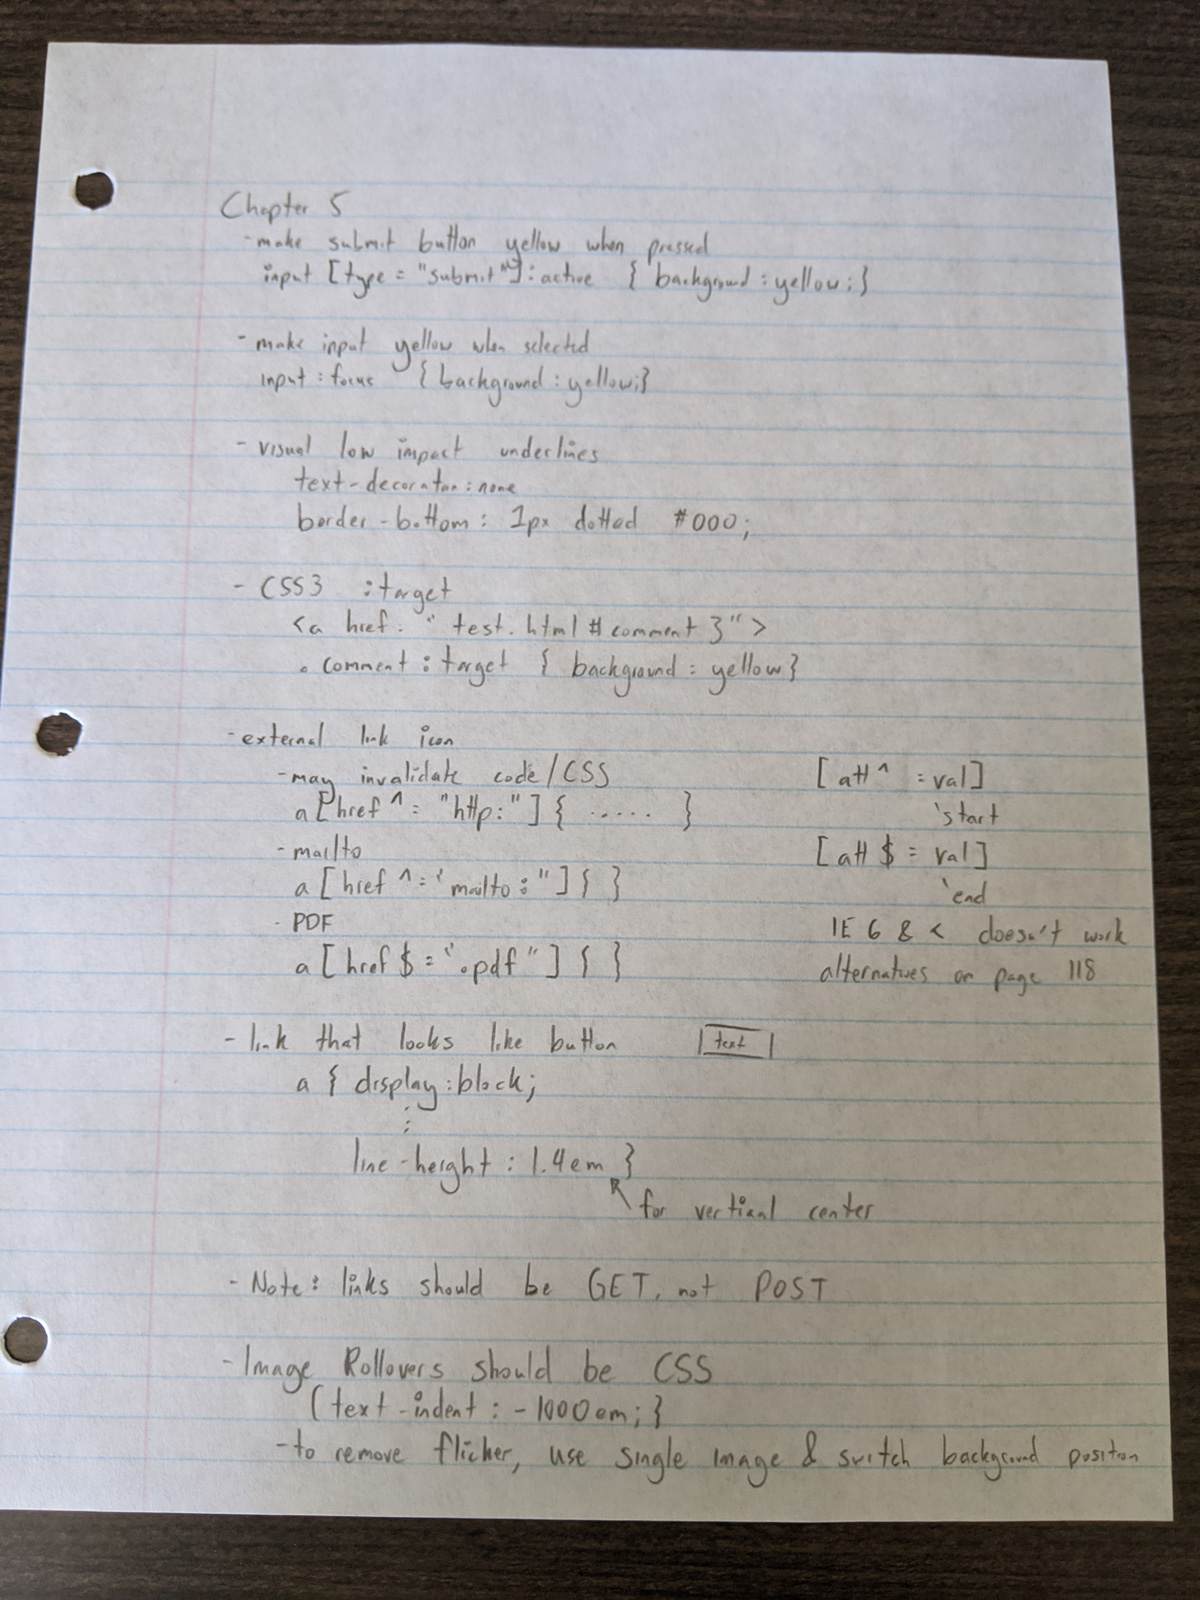 Chapter 5
- make submit button yellow when pressed
input [type = "submit"]:active { background : yellow; }
- make input yellow when selected
input : focus { background : yellow; }
- visual low impact underlines
text-decoration : none
border-bottom : 1px dotted #000;
- CSS3 :target
<a href: "test.html#comment3">
.comment : target { background : yellow }
- external link icon
- may invalidate code/CSS
a [href ^= "http:"] { ..... }
- mailto
a [href ^= 'mailto:"] { }
- PDF
a [href $= '.pdf"] { }
[att ^ = val]
'start
[att $ = val]
'end
IE 6 & < doesn't work
alternatives on page 118
- link that looks like button |text|
a { display : block;
:
line-height : 1.4em }
for vertical center
- Note: links should be GET, not POST
- Image Rollovers should be CSS
{text-indent : -1000em; }
- to remove flicker, use single image & switch background position